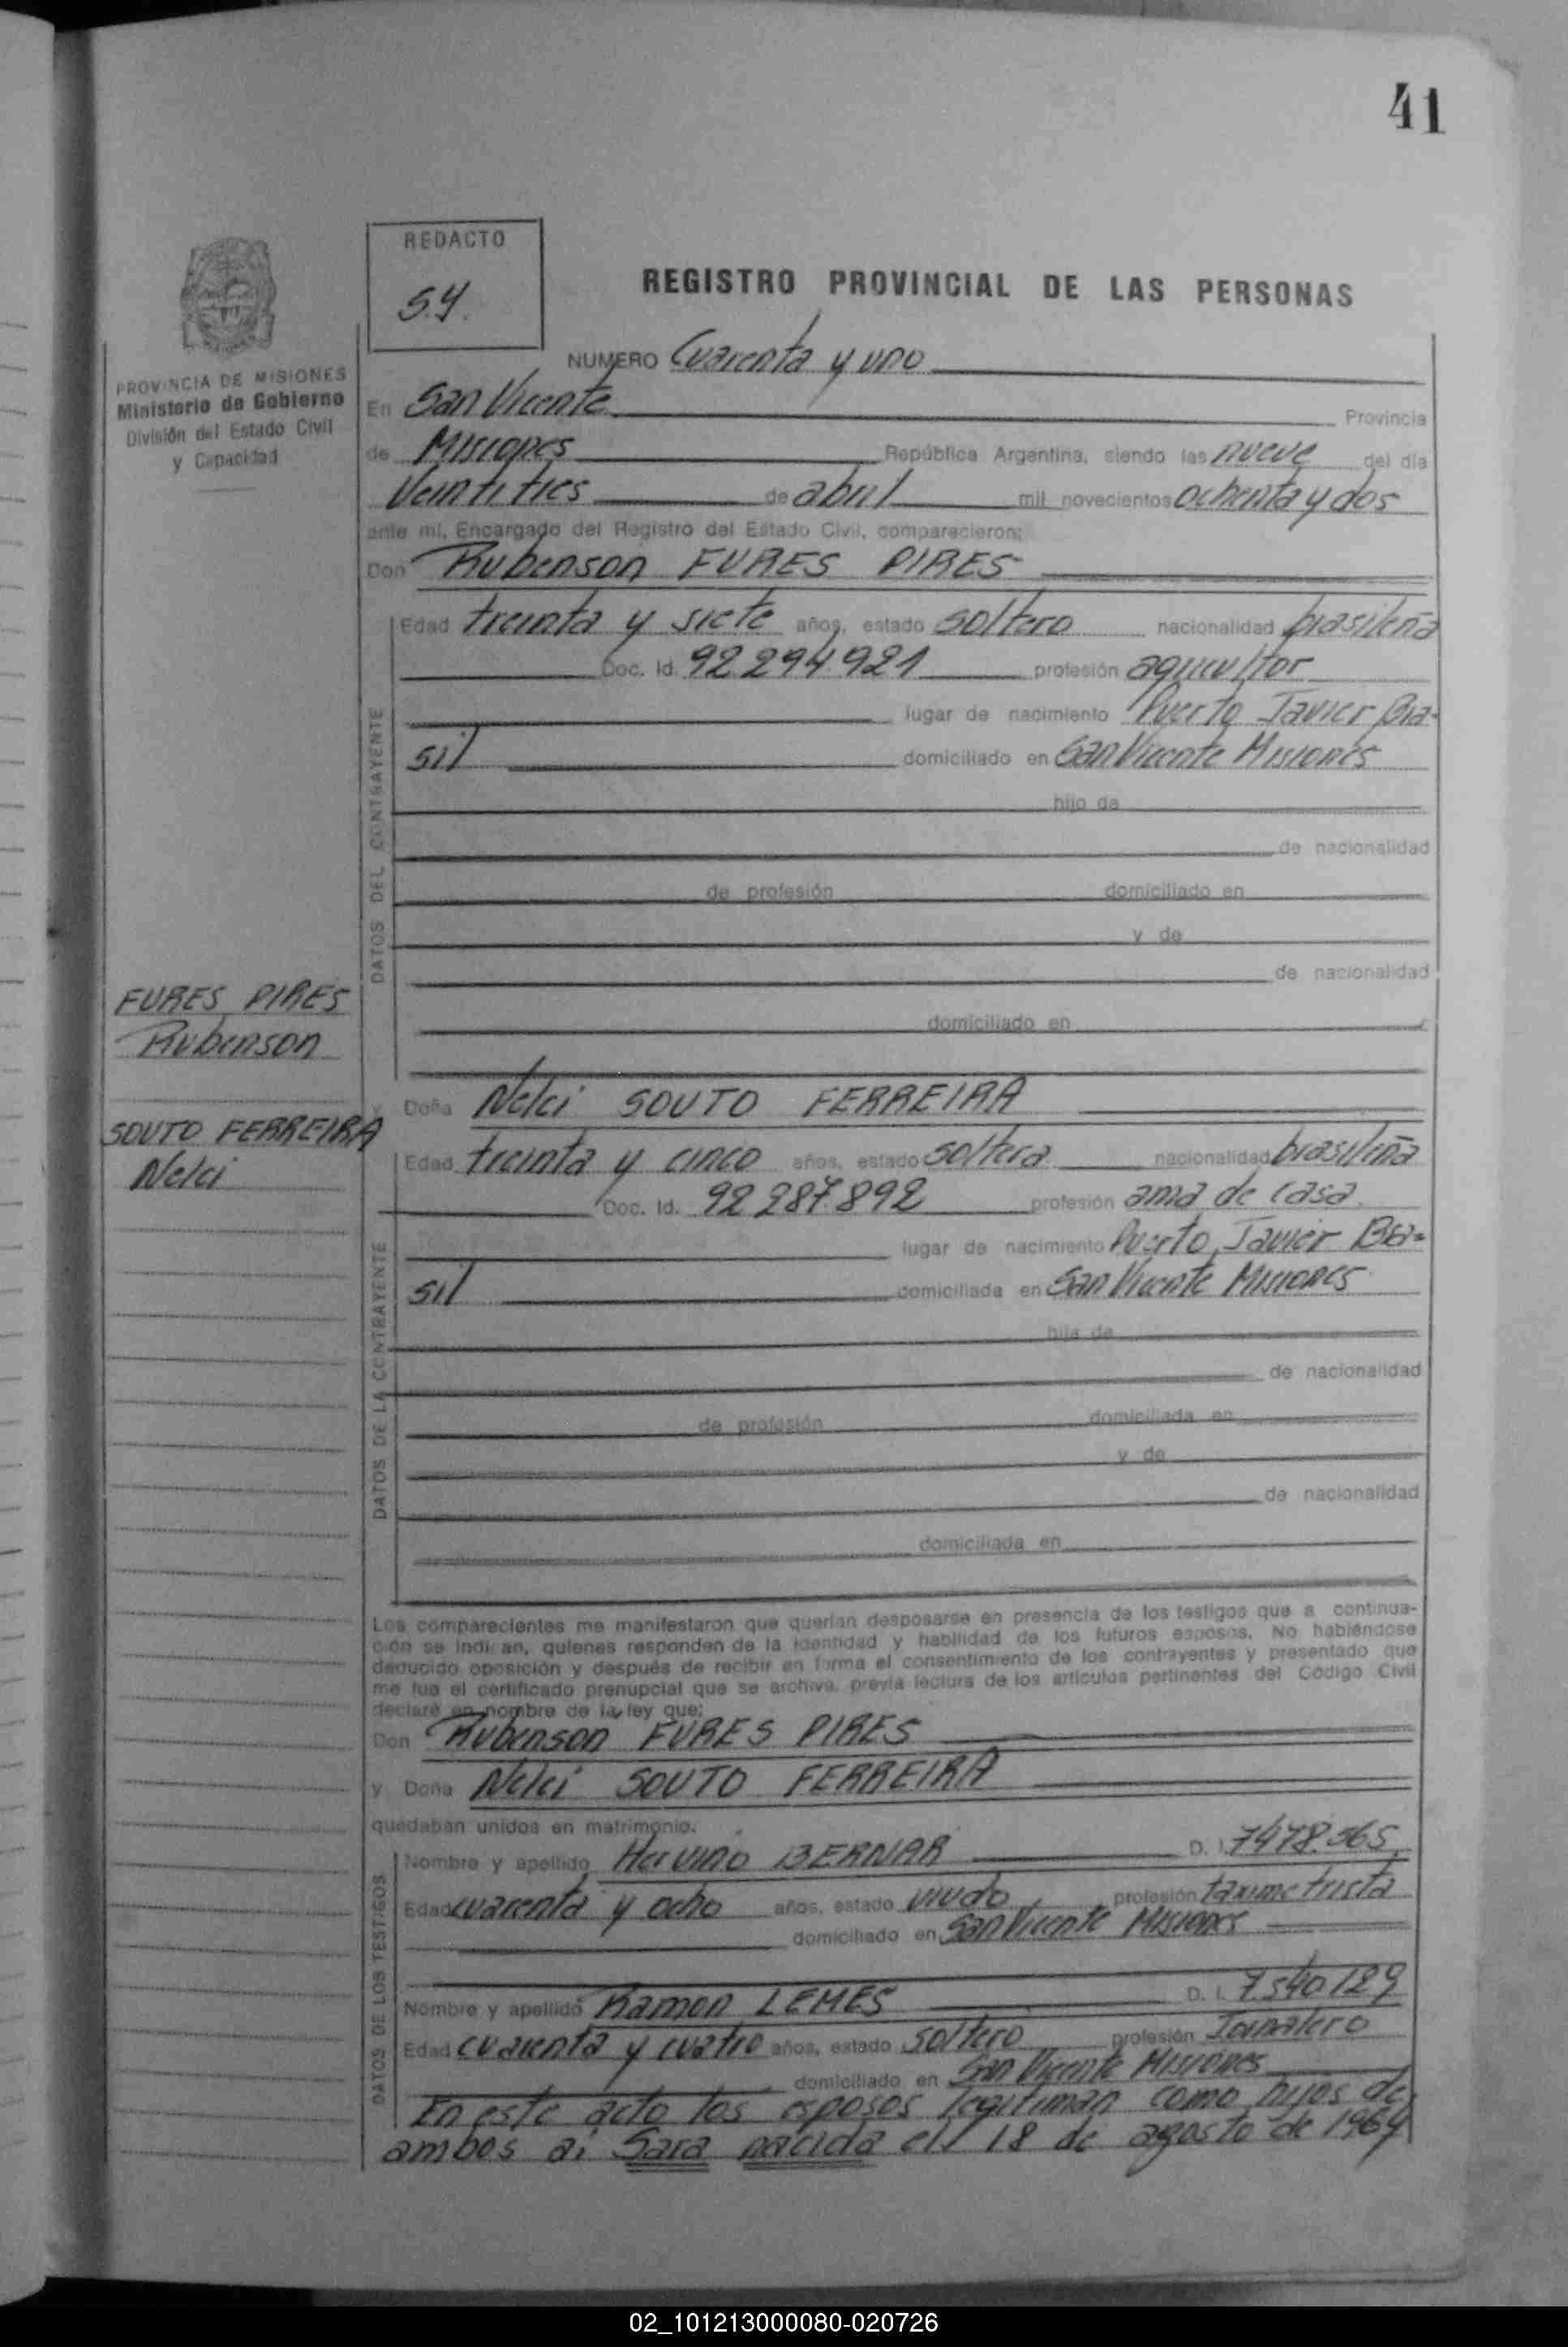 41
REDACTO
S.Y.
REGISTRO PROVINCIAL DE LAS PERSONAS
PROVINCIA DE MISIONES
Ministerio de Gobierno
División del Estado Civil
y Capacidad
NUMERO Cuarenta y uno
En San Vicente Provincia
de Misiones República Argentina, siendo las nueve del día
Veintitres de abril mil novecientos ochenta y dos
ante mí, Encargado del Registro del Estado Civil, comparecieron:
Don Rubenson FURES PIRES
DATOS DEL CONTRAYENTE
Edad treinta y siete años, estado soltero nacionalidad brasileña
Doc. Id. 92.294.921 profesión agricultor
lugar de nacimiento Puerto Javier Bra-
sil domiciliado en San Vicente Misiones
hijo de
de nacionalidad
de profesión domiciliado en
y de
de nacionalidad
domiciliado en
FURES PIRES
Rubenson
SOUTO FERREIRA
Nelci
Doña Nelci SOUTO FERREIRA
DATOS DE LA CONTRAYENTE
Edad treinta y cinco años, estado soltera nacionalidad brasileña
Doc. Id. 92.287.892 profesión ama de casa
lugar de nacimiento Puerto Javier Bra-
sil domiciliada en San Vicente Misiones
hija de
de nacionalidad
de profesión domiciliada en
y de
de nacionalidad
domiciliada en
Los comparecientes me manifestaron que querían desposarse en presencia de los testigos que a continua-
ción se indican, quienes responden de la identidad y habilidad de los futuros esposos. No habiéndose
deducido oposición y después de recibir en forma el consentimiento de los contrayentes y presentado que
me fue el certificado prenupcial que se archiva, previa lectura de los artículos pertinentes del Código Civil
declaré en nombre de la ley que:
Don Rubenson FURES PIRES
y Doña Nelci SOUTO FERREIRA
quedaban unidos en matrimonio.
DATOS DE LOS TESTIGOS
Nombre y apellido BERNAR D. I. 7478.565
Edad cuarenta y ocho años, estado viudo profesión taximetrista
domiciliado en San Vicente Misiones
Nombre y apellido Ramon LEMES D. I. 7.540.129
Edad cuarenta y cuatro años, estado soltero profesión Jornalero
domiciliado en San Vicente Misiones
En este acto los esposos legitiman como hijos de
ambos a: Sara nacida el 18 de agosto de 1964
02_101213000080-020726